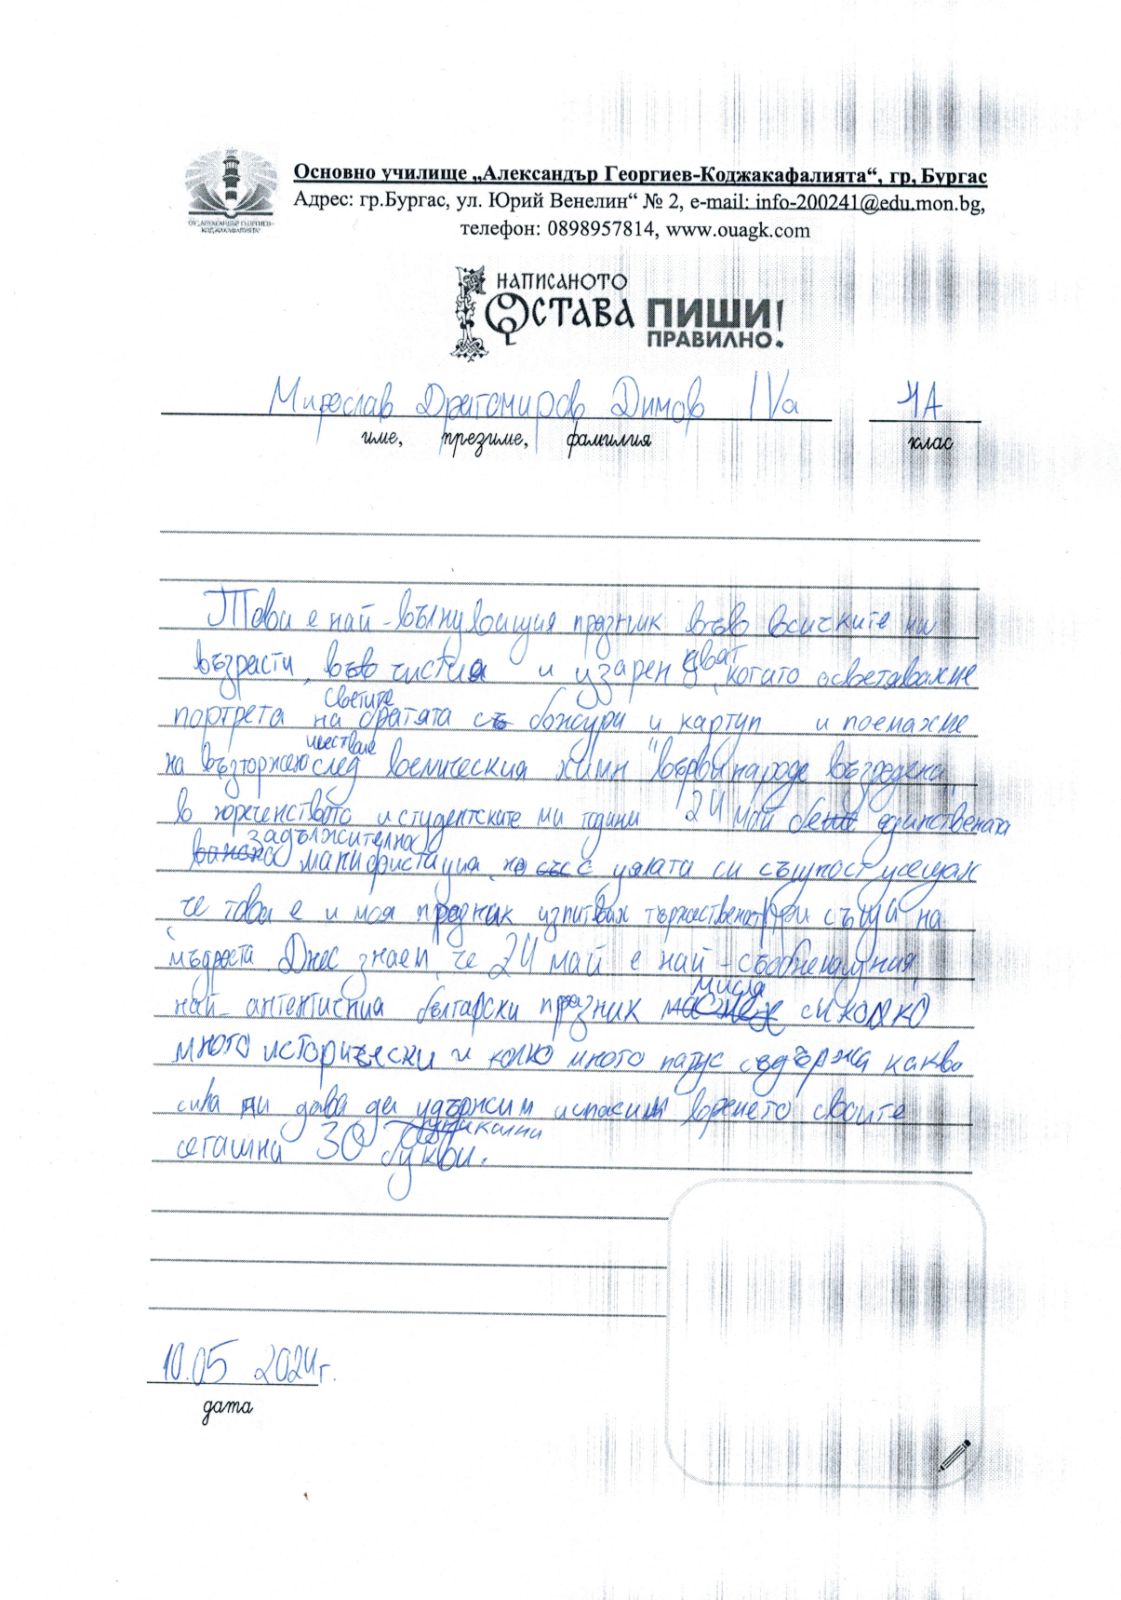 Основно училище „Александър Георгиев-Коджакафалията“, гр, Бургас
Адрес: гр.Бургас, ул. Юрий Венелин“ № 2, e-mail: info-200241@edu.mon.bg,
телефон: 0898957814, www.ouagk.com
ОУ „АЛЕКСАНДЪР ГЕОРГИЕВ-
КОДЖАКАФАЛИЯТА“
НАПИСАНОТО
ОСТАВА ПИШИ
ПРАВИЛНО!
Мирослав Драгомиров Димов IVa 4А
име, презиме, фамилия клас
Това е най-вълнуващия празник във всичките ни
възрасти, във чистия и узарен, когато осветавахме
портрета на светите братята с божури и картуп и поемахме
на възторжено шествие след великическия химн "върви народе възродена
в юреченството и студентските ми години 24 май беше единствената
задължително манифистация, но с цялата си същност усещам
че това е и моя празник изпитвах тържественост при съща на
мъдроста. Днес знаем, че 24 май е най-съобненалуния,
най-антентисния български празник мисля си колко
много исторически и колко много патус съдържа какво
сила ни дава да удържим испасим времето своите
сегашни 30 уникални букви.
10.05 2024г.
дата